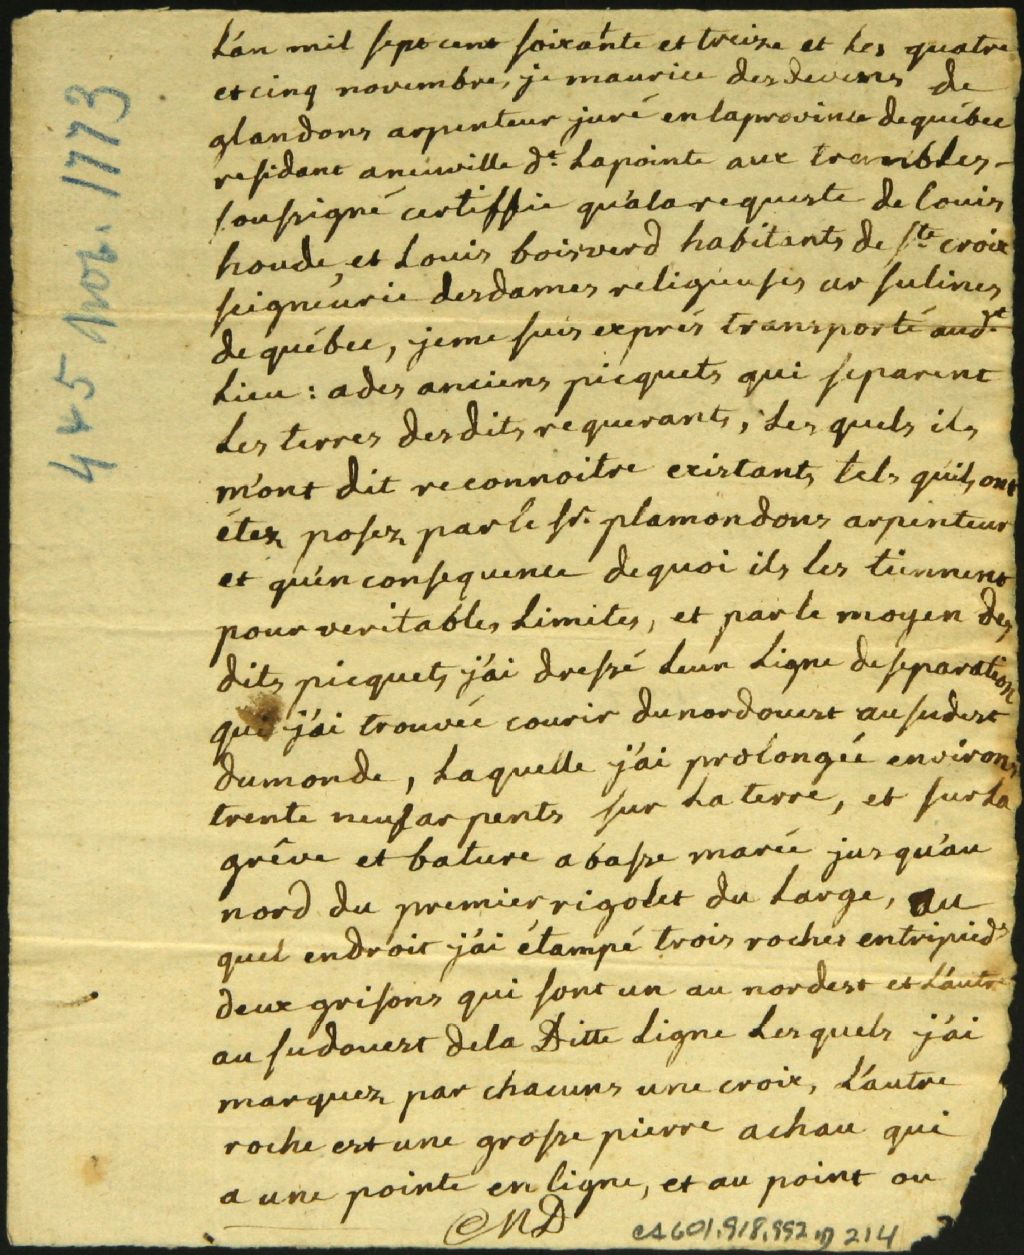 4 & 5 Nov. 1773
L'an mil sept cent soixante et treize et les quatre
et cinq novembre, je maurice desdevens de
glandons arpenteur juré en laprovince dequébec
residant aneuville dt. Lapointe aux trembles -
soussigné certiffie qu'ala requeste de louis
houde, et Louis boisverd habitants de Ste croix
seigneurie desdames religieuses ursulines
de québec, jeme suis exprés transporté aud.t
Lieu : a des anciens picquets qui separent
Les terres desdits requerants, Les quels ils
m'ont dit reconnoitre existants tels quils ont
étez posez par le Sr. plamondons arpenteur
et qu'en consequence dequoi ils les tiennent
pour veritables Limites, et par le moyen des
dits picquets j'ai dressé Leur Ligne de separation
que j'ai trouvée courir du nordouest au sudest
dumonde, Laquelle j'ai prolongée environs
trente neuf arpents sur La terre, et sur La
grêve et bature a basse marée jusqu'au
nord du premier rigolet du Large, au
quel endroit j'ai étampé trois roches entripieds
deux grisons qui sont un au nordest et L'autre
au sudouest dela Ditte Ligne Lesquels j'ai
marquez par chacuns une croix, L'autre
roche est une grosse pierre achau qui
a une pointe en ligne, et au point ou
MD
CA601,918,992,D 214